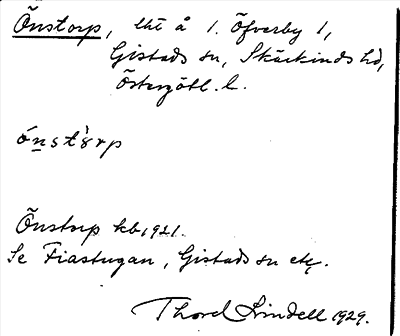 Önstorp, lht å 1. Öfverby 1,
Gistads sn, Skärkinds hd,
Östergötl. l.
ó̤nstòrp
Önstorp kb 1921.
Se Fiastugan, Gistads sn etc.
Thord Lindell 1929.